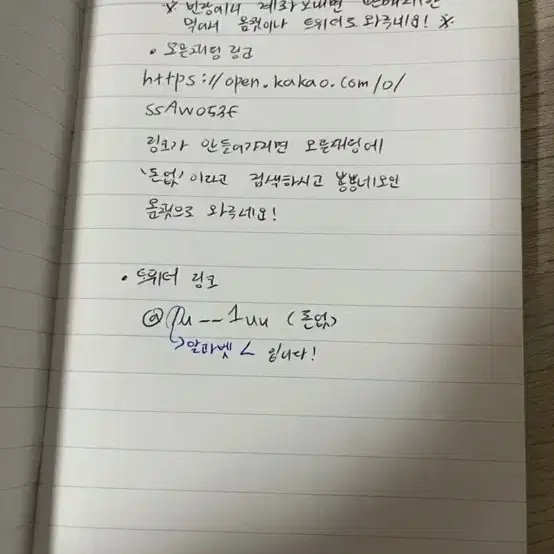 ※ 번장에서 계좌 보내면
먹어서 옾챗이나 트위터로 와주세요! ※
• 오픈채팅 링크
https://open.kakao.com/o/
ssAW053f
링크가 안들어가지면 오픈채팅에
'돈없'이라고 검색하시고 뿡뿡네오인
옾챗으로 와주세요!
• 트위터 링크
@lu__1uu (돈없)
→알파벳 L 입니다!